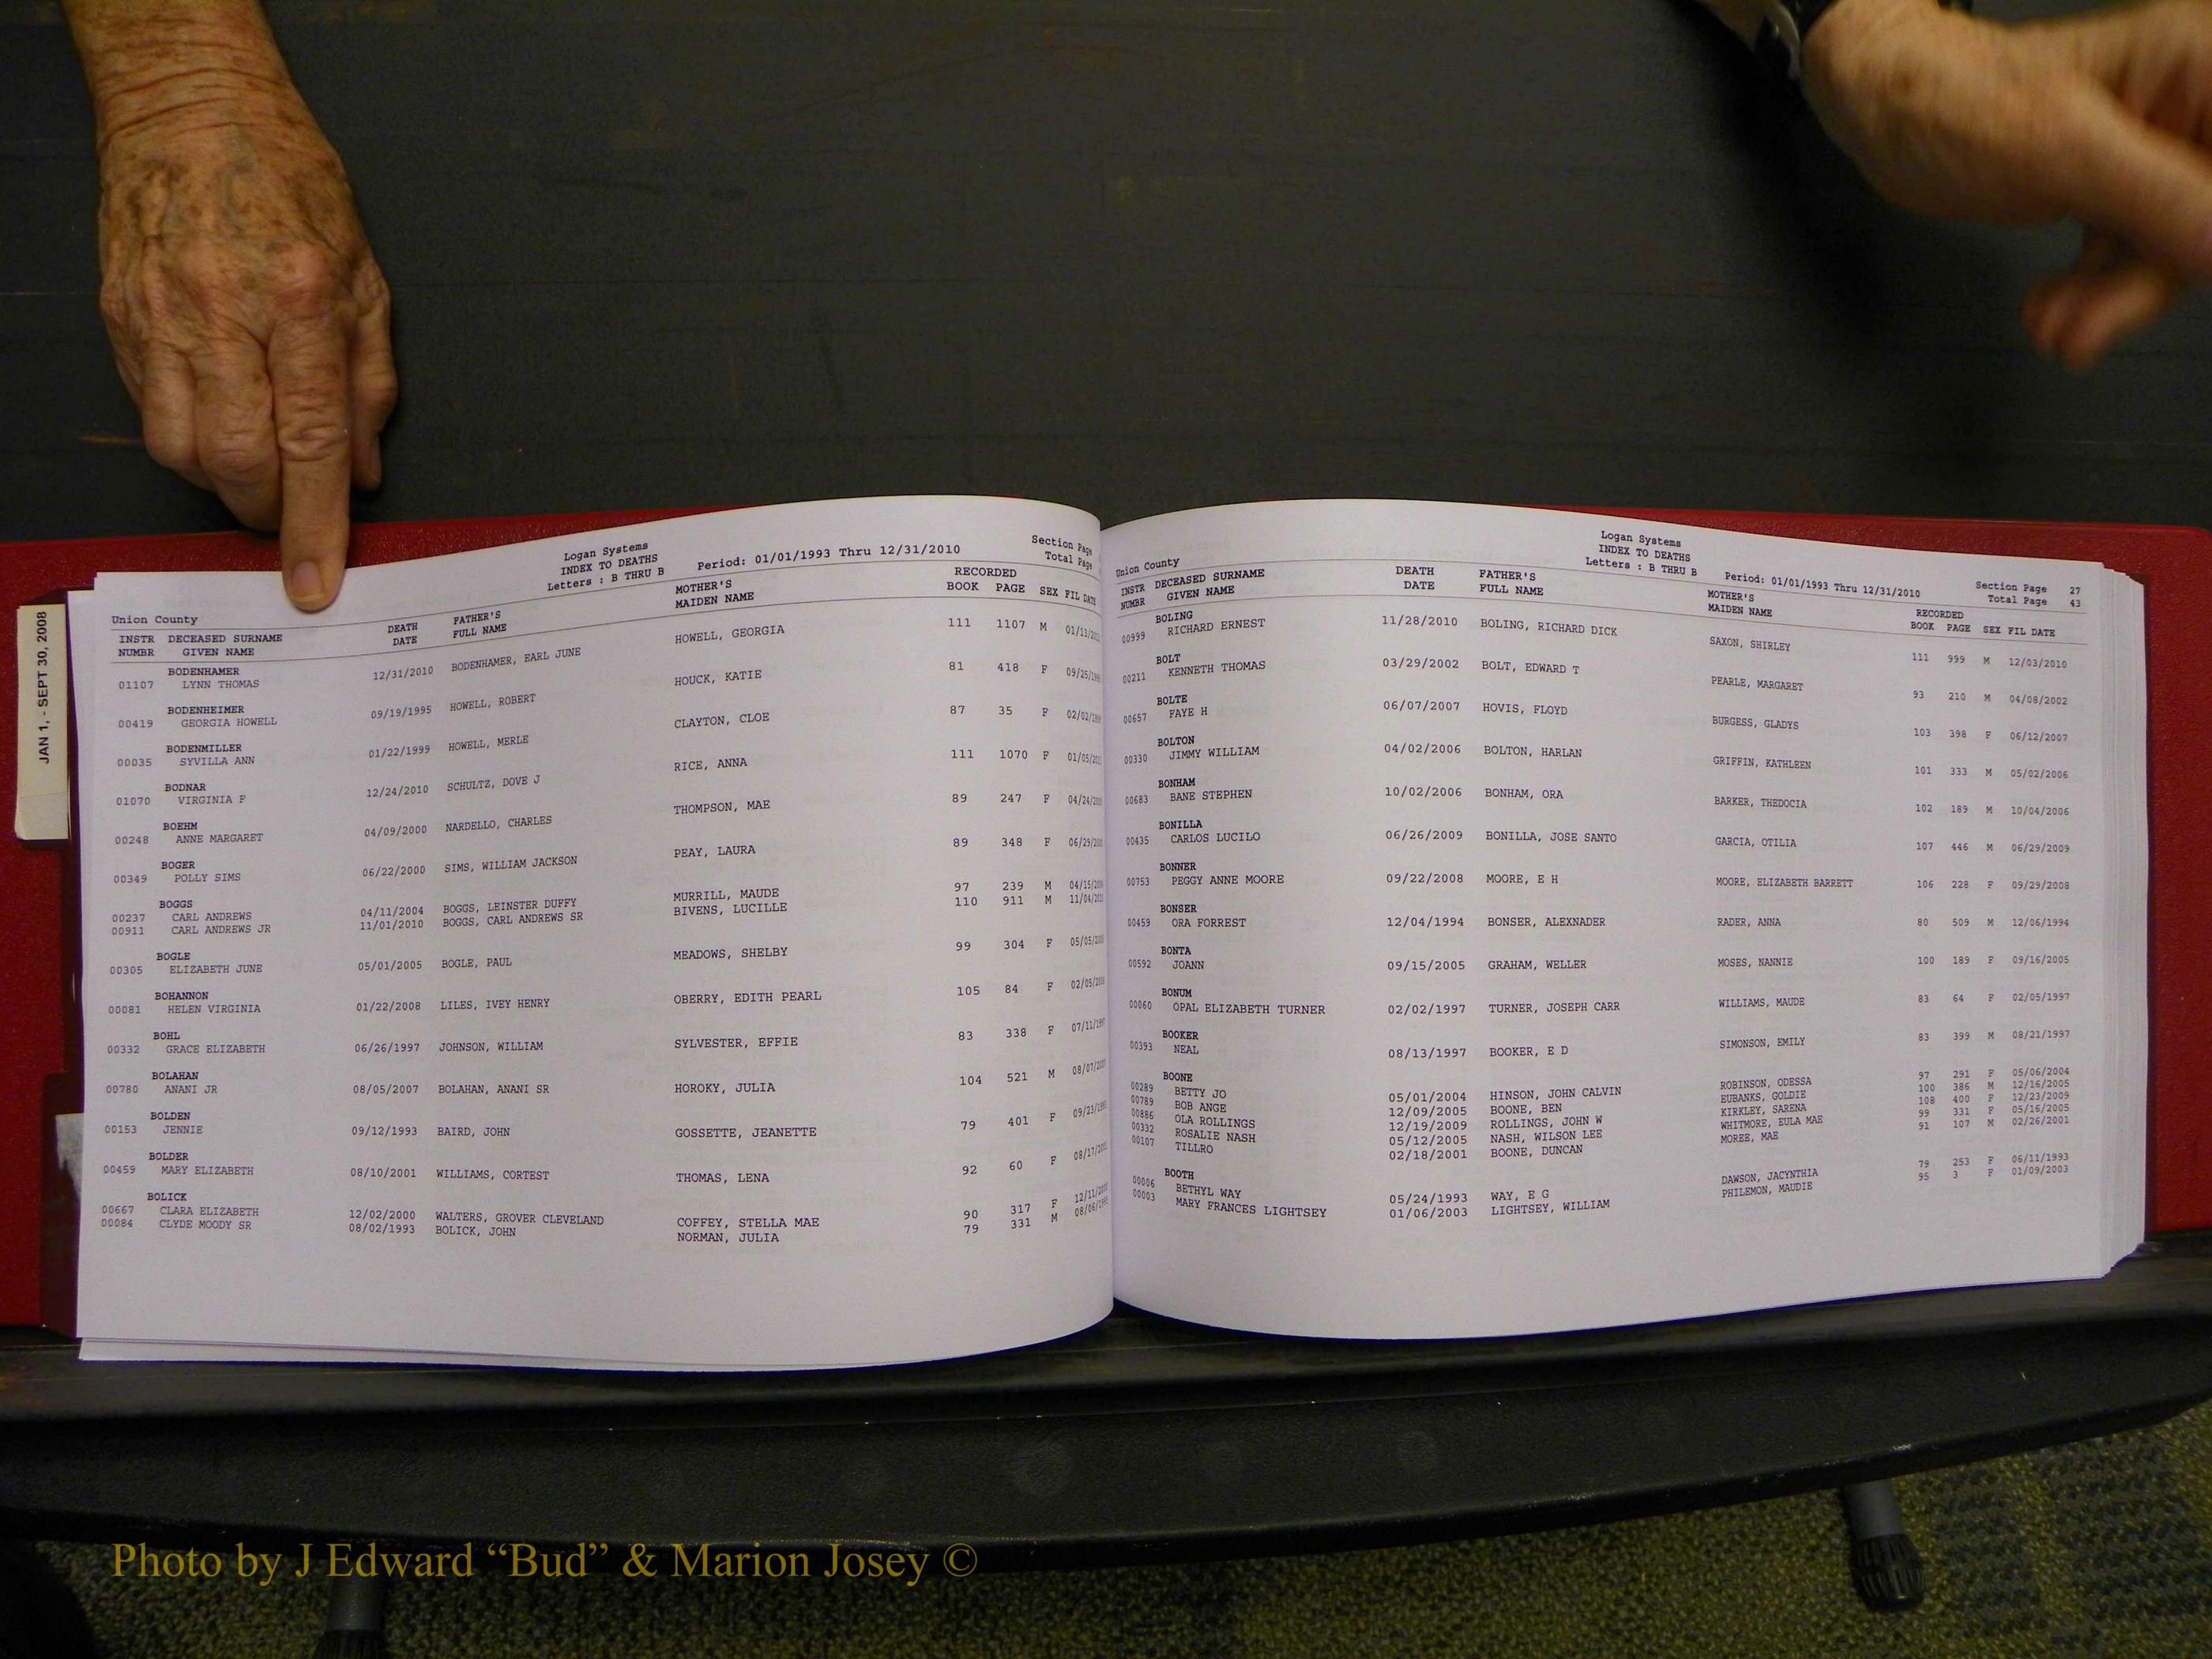 JAN 1, - SEPT 30, 2008
Logan Systems
INDEX TO DEATHS
Letters : B THRU B
Period: 01/01/1993 Thru 12/31/2010
Section Page
Total Page
Union County
INSTR DECEASED SURNAME DEATH FATHER'S MOTHER'S RECORDED
NUMBR GIVEN NAME DATE FULL NAME MAIDEN NAME BOOK PAGE SEX FIL DATE
BODENHAMER
01107 LYNN THOMAS 12/31/2010 BODENHAMER, EARL JUNE HOWELL, GEORGIA 111 1107 M
BODENHEIMER
00419 GEORGIA HOWELL 09/19/1995 HOWELL, ROBERT HOUCK, KATIE 81 418 F
BODENMILLER
00035 SYVILLA ANN 01/22/1999 HOWELL, MERLE CLAYTON, CLOE 87 35 F
BODNAR
01070 VIRGINIA F 12/24/2010 SCHULTZ, DOVE J RICE, ANNA 111 1070 F
BOEHM
00248 ANNE MARGARET 04/09/2000 NARDELLO, CHARLES THOMPSON, MAE 89 247 F
BOGER
00349 POLLY SIMS 06/22/2000 SIMS, WILLIAM JACKSON PEAY, LAURA 89 348 F
BOGGS
00237 CARL ANDREWS 04/11/2004 BOGGS, LEINSTER DUFFY MURRILL, MAUDE 97 239 M
00911 CARL ANDREWS JR 11/01/2010 BOGGS, CARL ANDREWS SR BIVENS, LUCILLE 110 911 M
BOGLE
00305 ELIZABETH JUNE 05/01/2005 BOGLE, PAUL MEADOWS, SHELBY 99 304 F
BOHANNON
00081 HELEN VIRGINIA 01/22/2008 LILES, IVEY HENRY OBERRY, EDITH PEARL 105 84 F
BOHL
00332 GRACE ELIZABETH 06/26/1997 JOHNSON, WILLIAM SYLVESTER, EFFIE 83 338 F
BOLAHAN
00780 ANANI JR 08/05/2007 BOLAHAN, ANANI SR HOROKY, JULIA 104 521 M
BOLDEN
00153 JENNIE 09/12/1993 BAIRD, JOHN GOSSETTE, JEANETTE 79 401 F
BOLDER
00459 MARY ELIZABETH 08/10/2001 WILLIAMS, CORTEST THOMAS, LENA 92 60 F
BOLICK
00667 CLARA ELIZABETH 12/02/2000 WALTERS, GROVER CLEVELAND COFFEY, STELLA MAE 90 317 F
00084 CLYDE MOODY SR 08/02/1993 BOLICK, JOHN NORMAN, JULIA 79 331 M
Logan Systems
INDEX TO DEATHS
Letters : B THRU B
Period: 01/01/1993 Thru 12/31/2010
Section Page 27
Total Page 43
Union County
INSTR DECEASED SURNAME DEATH FATHER'S MOTHER'S RECORDED
NUMBR GIVEN NAME DATE FULL NAME MAIDEN NAME BOOK PAGE SEX FIL DATE
BOLING
00999 RICHARD ERNEST 11/28/2010 BOLING, RICHARD DICK SAXON, SHIRLEY 111 999 M 12/03/2010
BOLT
00211 KENNETH THOMAS 03/29/2002 BOLT, EDWARD T PEARLE, MARGARET 93 210 M 04/08/2002
BOLTE
00657 FAYE H 06/07/2007 HOVIS, FLOYD BURGESS, GLADYS 103 398 F 06/12/2007
BOLTON
00330 JIMMY WILLIAM 04/02/2006 BOLTON, HARLAN GRIFFIN, KATHLEEN 101 333 M 05/02/2006
BONHAM
00683 BANE STEPHEN 10/02/2006 BONHAM, ORA BARKER, THEDOCIA 102 189 M 10/04/2006
BONILLA
00435 CARLOS LUCILO 06/26/2009 BONILLA, JOSE SANTO GARCIA, OTILIA 107 446 M 06/29/2009
BONNER
00753 PEGGY ANNE MOORE 09/22/2008 MOORE, E H MOORE, ELIZABETH BARRETT 106 228 F 09/29/2008
BONSER
00459 ORA FORREST 12/04/1994 BONSER, ALEXNADER RADER, ANNA 80 509 M 12/06/1994
BONTA
00592 JOANN 09/15/2005 GRAHAM, WELLER MOSES, NANNIE 100 189 F 09/16/2005
BONUM
00060 OPAL ELIZABETH TURNER 02/02/1997 TURNER, JOSEPH CARR WILLIAMS, MAUDE 83 64 F 02/05/1997
BOOKER
00393 NEAL 08/13/1997 BOOKER, E D SIMONSON, EMILY 83 399 M 08/21/1997
BOONE
00289 BETTY JO 05/01/2004 HINSON, JOHN CALVIN ROBINSON, ODESSA 97 291 F 05/06/2004
00789 BOB ANGE 12/09/2005 BOONE, BEN EUBANKS, GOLDIE 100 386 M 12/16/2005
00886 OLA ROLLINGS 12/19/2009 ROLLINGS, JOHN W KIRKLEY, SARENA 108 400 F 12/23/2009
00332 ROSALIE NASH 05/12/2005 NASH, WILSON LEE WHITMORE, EULA MAE 99 331 F 05/16/2005
00107 TILLRO 02/18/2001 BOONE, DUNCAN MOREE, MAE 91 107 M 02/26/2001
BOOTH
00006 BETHYL WAY 05/24/1993 WAY, E G DAWSON, JACYNTHIA 79 253 F 06/11/1993
00003 MARY FRANCES LIGHTSEY 01/06/2003 LIGHTSEY, WILLIAM PHILEMON, MAUDIE 95 3 F 01/09/2003
Photo by J Edward “Bud” & Marion Josey ©